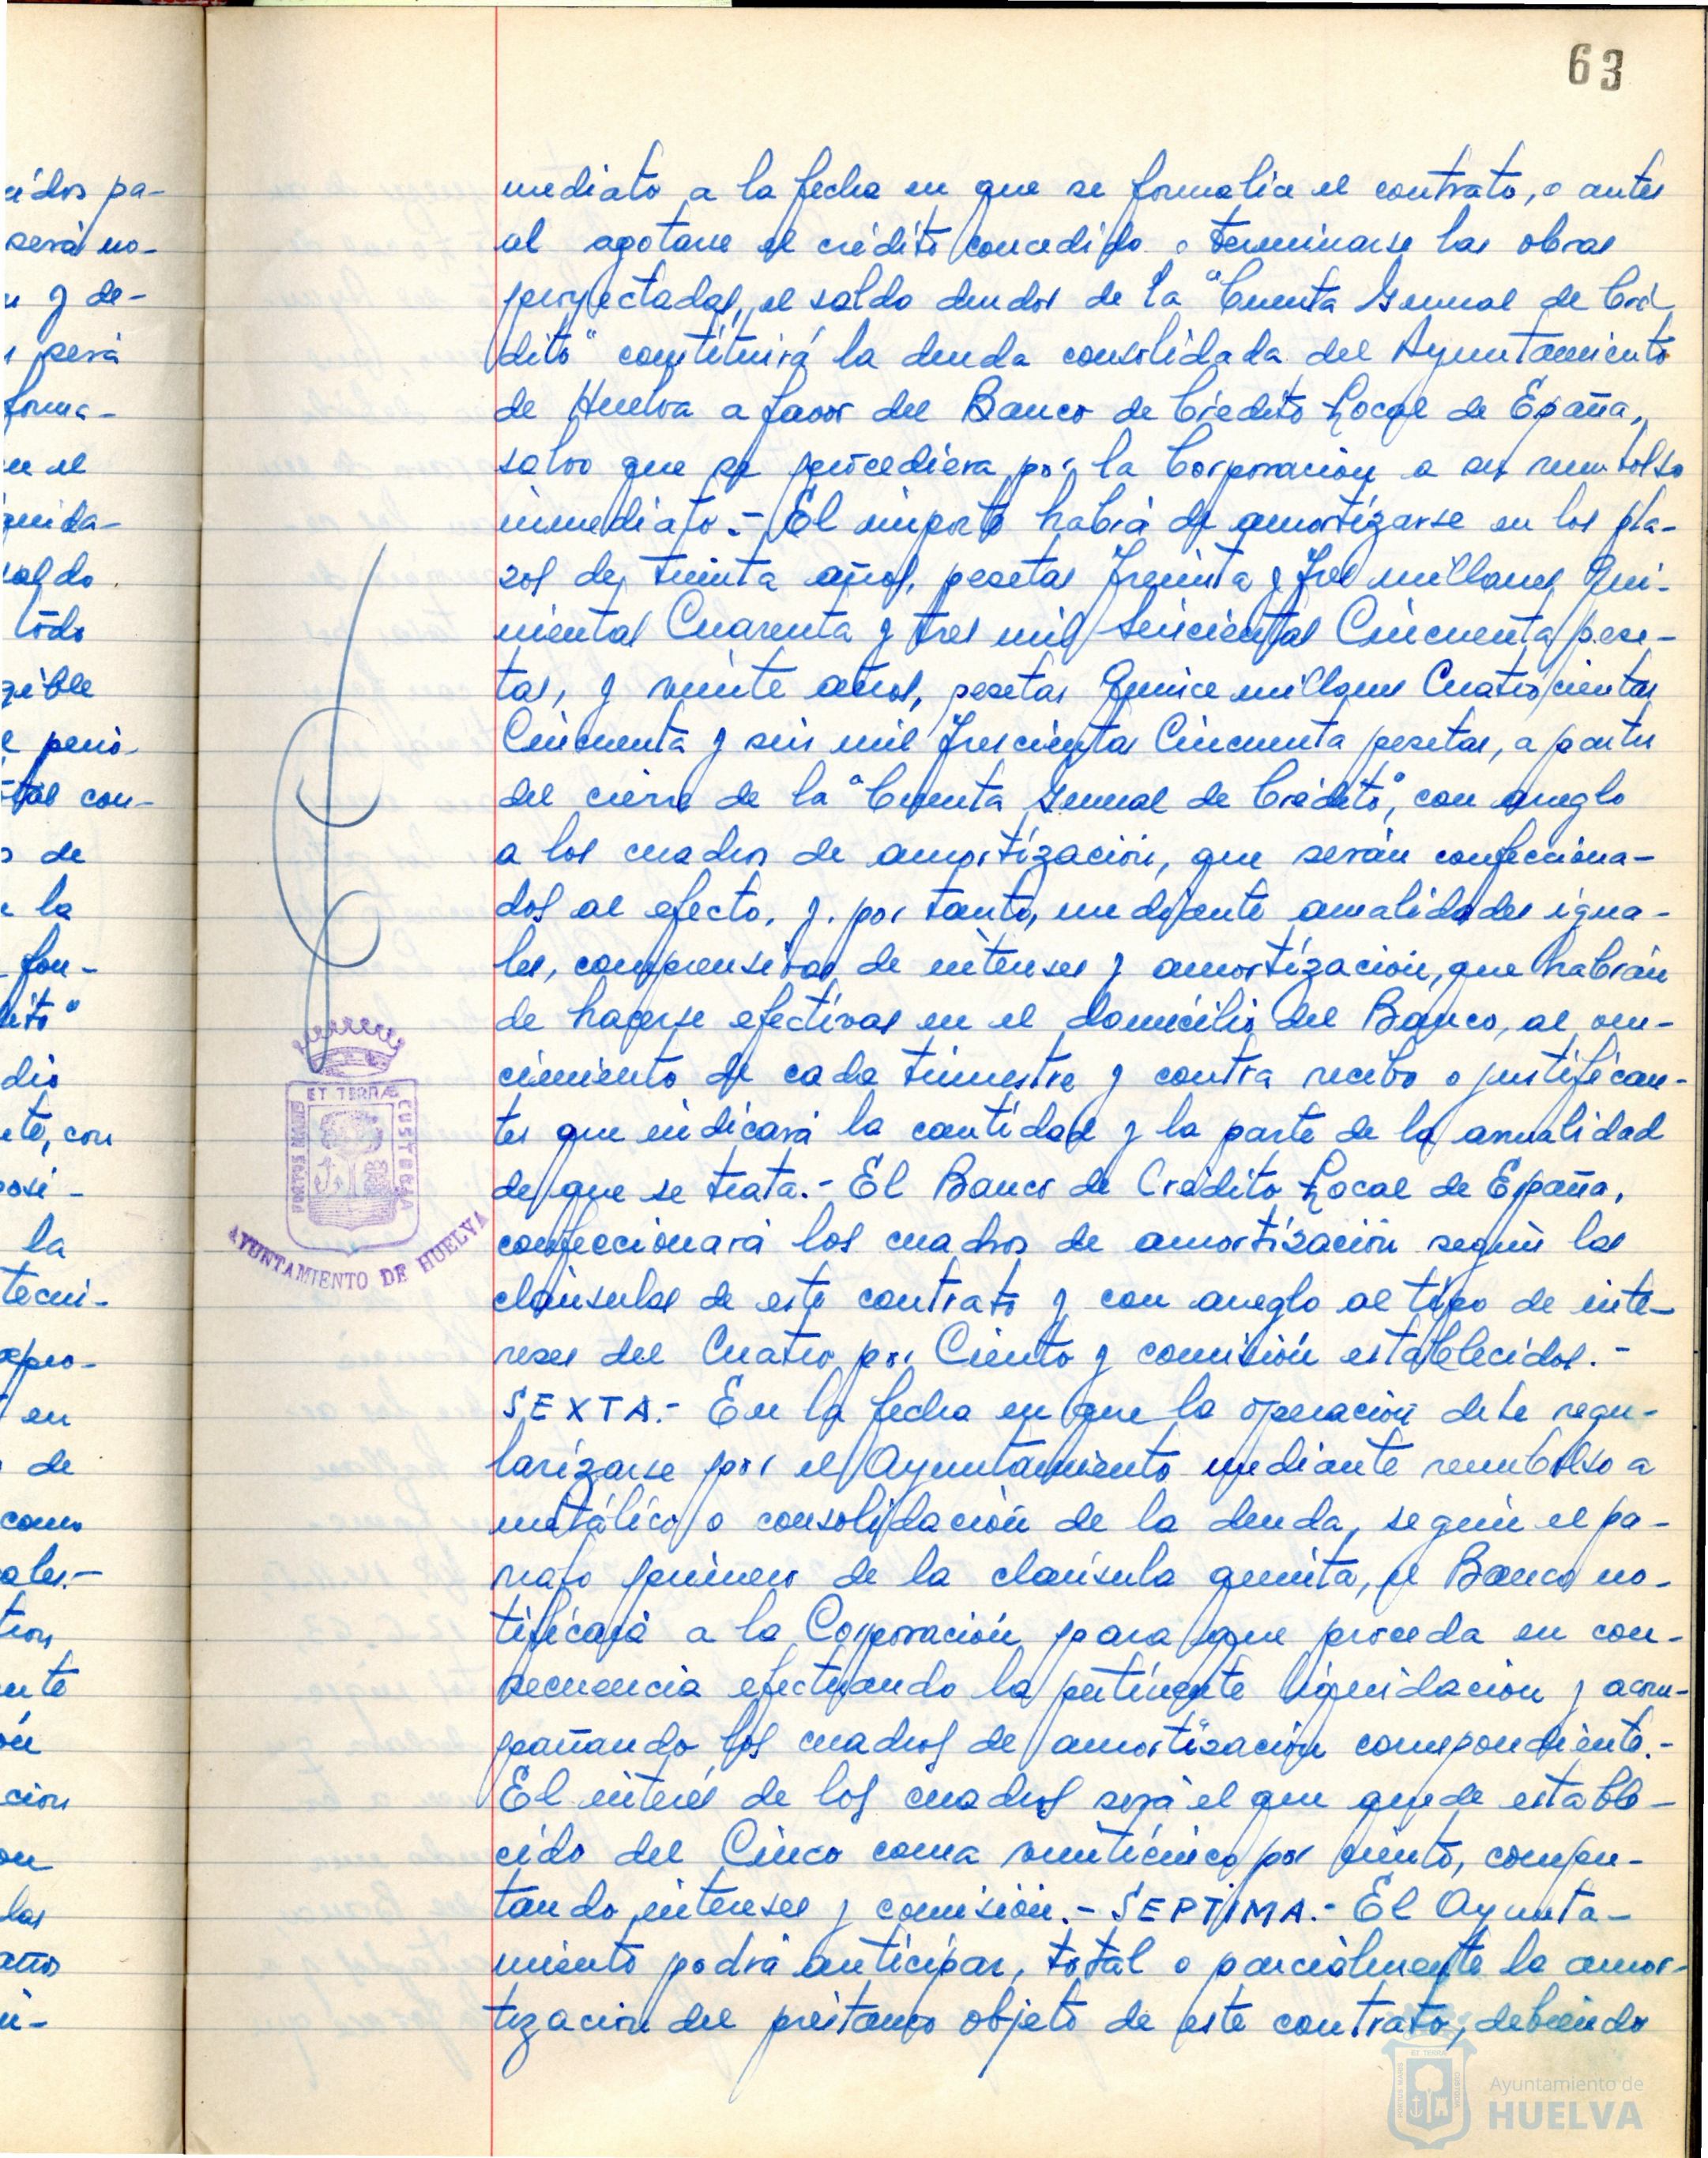 63
cidos pa-
será no-
n y de-
será
forma-
en el
quida-
saldo
todo
gible
e perio-
tal con-
s de
e la
fon-
dito"
dio
nte, con
posi-
la
tecni-
apro-
en
de
como
ales.-
tros
ente
ón
cion
on
las
años
mediato a la fecha en que se formalice el contrato, o antes
al agotarse el crédito concedido o terminarse las obras
proyectadas, el saldo deudor de la "Cuenta General de Cré-
dito" constituirá la deuda consolidada del Ayuntamiento
de Huelva a favor del Banco de Credito Local de España,
salvo que se procediera por la Corporación a su reembolso
inmediato.- El importe habrá de amortizarse en los pla-
zos de, treinta años, pesetas Treinta y Tres millones Qui-
nientas Cuarenta y tres mil Seiscientas Cincuenta pese-
tas, y veinte años, pesetas Quince millones Cuatrocientas
Cincuenta y seis mil Trescientas Cincuenta pesetas, a partir
del cierre de la "Cuenta General de Crédito", con arreglo
a los cuadros de amortización, que serán confecciona-
dos al efecto, y. por tanto, mediante anualidades igua-
les, comprensivas de intereses y amortización, que habrán
de hacerse efectivas en el domicilio del Banco, al ven-
cimiento de cada trimestre y contra recibo o justifican-
tes que indicará la cantidad y la parte de la anualidad
de que se trata.- El Banco de Crédito Local de España,
confeccionará los cuadros de amortización según las
cláusulas de este contrato y con arreglo al tipo de inte-
reses del Cuatro por Ciento y comisión establecidos.-
SEXTA.- En la fecha en que la operación debe regu-
larizarse por el Ayuntamiento mediante reembolso a
metálico o consolidación de la deuda, según el pá-
rrafo primero de la cláusula quinta, el Banco no-
tificará a la Corporación para que proceda en con-
secuencia efectuando la pertinente liquidación y acom-
pañando los cuadros de amortización correspondiente.-
El interés de los cuadros será el que quede estable-
cido del Cinco coma veinticinco por ciento, compu-
tando intereses y comisión.- SEPTIMA.- El Ayunta-
miento podrá anticipar, total o parcialmente la amor-
tización del préstamo objeto de este contrato, debiendo
PORTUS MARIS
ET TERRÆ
CUSTODIA
AYUNTAMIENTO DE HUELVA
Ayuntamiento de
HUELVA